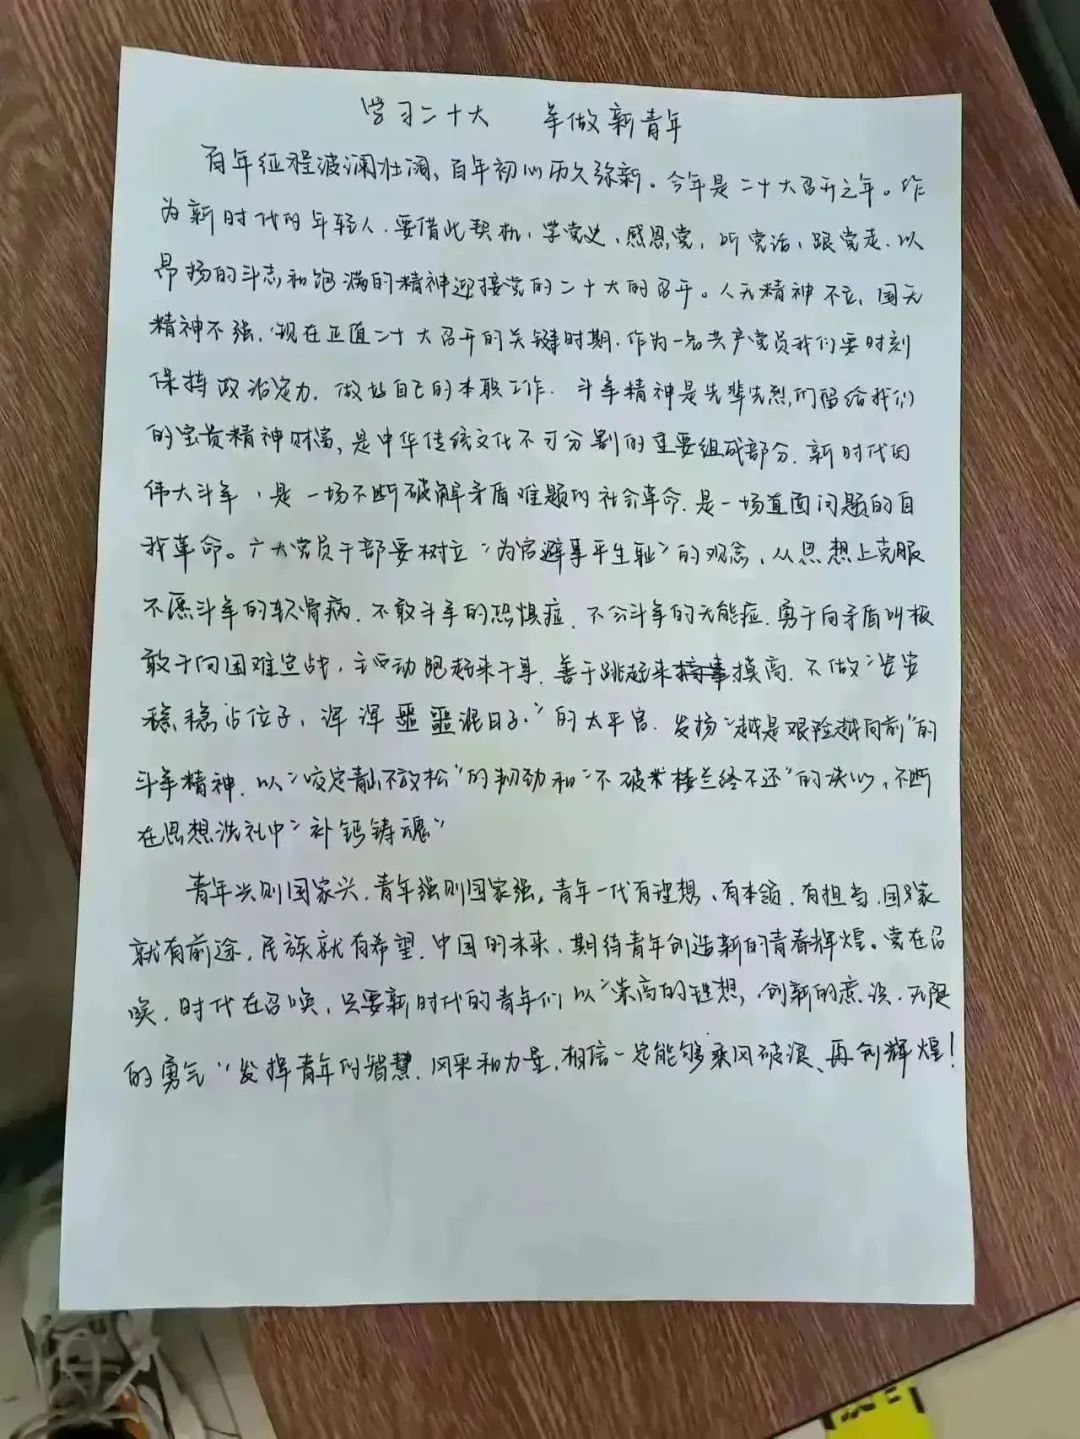 学习二十大 争做新青年
百年征程波澜壮阔，百年初心历久弥新。今年是二十大召开之年。作
为新时代的年轻人，要借此契机，学党史，感恩党，听党话，跟党走，以
昂扬的斗志和饱满的精神迎接党的二十大的召开。人无精神不立，国无
精神不强，现在正值二十大召开的关键时期，作为一名共产党员我们要时刻
保持政治定力，做好自己的本职工作．斗争精神是先辈先烈们留给我们
的宝贵精神财富，是中华传统文化不可分割的重要组成部分．新时代的
伟大斗争，是一场不断破解矛盾难题的社会革命，是一场直面问题的自
我革命。广大党员干部要树立“为官避事平生耻”的观念，从思想上克服
不愿斗争的软骨病，不敢斗争的恐惧症，不会斗争的无能症，勇于向矛盾叫板
敢于向困难宣战，主动跑起来干事，善于跳起来摸高，不做“安安
稳稳占位子，浑浑噩噩混日子．”的太平官．发扬“越是艰险越向前”的
斗争精神，以“咬定青山不放松”的韧劲和“不破楼兰终不还”的决心，不断
在思想洗礼中“补钙铸魂”
青年兴则国家兴，青年强则国家强。青年一代有理想、有本领、有担当，国家
就有前途，民族就有希望．中国的未来，期待青年创造新的青春辉煌。党在召
唤，时代在召唤，只要新时代的青年们以“崇高的理想，创新的意识，无限
的勇气”发挥青年的智慧、风采和力量，相信一定能够乘风破浪、再创辉煌！